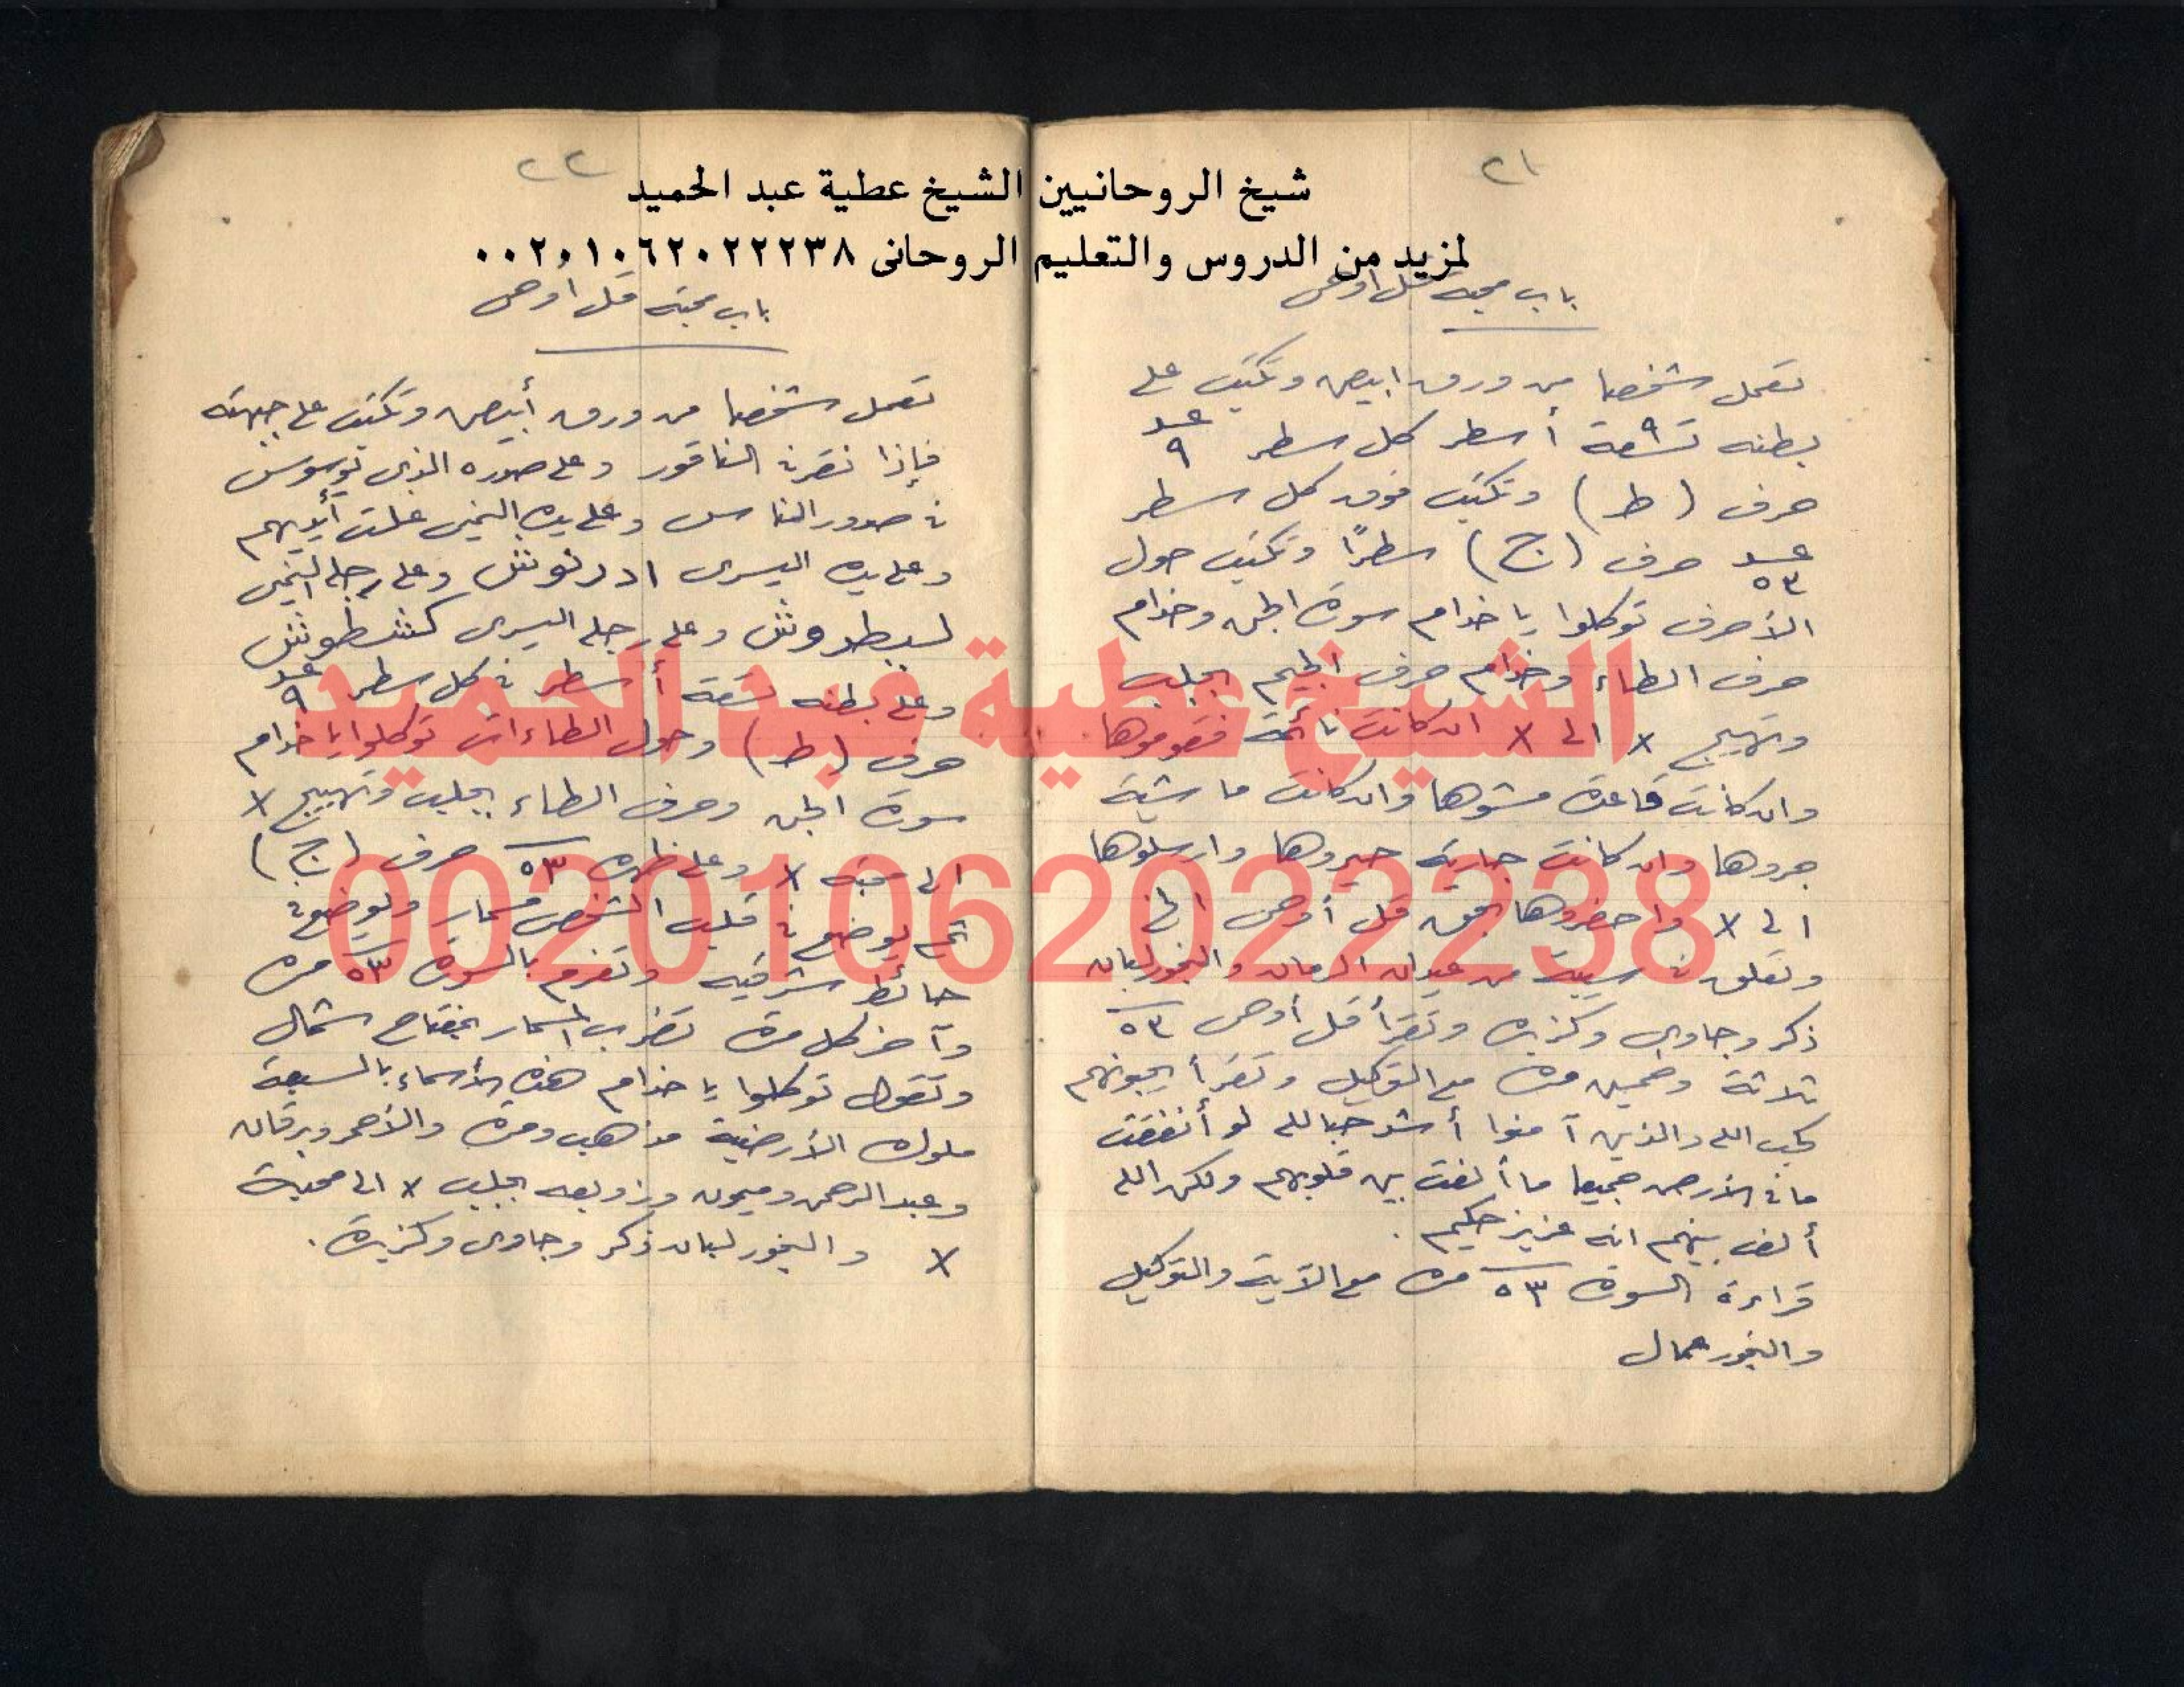 شيخ الروحانيين الشيخ عطية عبد الحميد
لمزيد من الدروس والتعليم الروحانى ٠٠٢٠١٠٦٢٠٢٢٢٣٨
٢١
باب محبة قل اوحى
تعمل شخصا من ورق ابيض وتكتب على
بطنه تسعة ٩ أسطر كل سطر عدد ٩
حرف (ط) وتكتب فوق كل سطر
عدد ٥٣ حرف (ج) سطرًا وتكتب حول
الأحرف توكلوا يا خدام سورة الجن وخدام
حرف الطاء وخدام حرف الجيم بجلب
وتهييج x الى x ان كانت نائمة فقوموها
وان كانت قاعدة مشوها وان كانت ماشية
جروها وان كانت جارية حيروها وارسلوها
الى x واحضروها بحق قل أوحى الخ
وتعلق فى سيبة من عيدان الرمان والبخور لبان
ذكر وجاوى وكزبره وتقرأ قل أوحى ٥٣
ثلاثة وخمسين مرة مع التوكيل وتقرأ يحبونهم
كحب الله والذين آمنوا أشد حبا لله لو أنفقت
ما فى الأرض جميعا ما ألفت بين قلوبهم ولكن الله
ألف بينهم انه عزيز حكيم .
قراءة السورة ٥٣ مرة مع الآية والتوكيل
والبخور عمال
٢٢
باب محبة قل أوحى
تعمل شخصا من ورق أبيض وتكتب على جبهته
فإذا نقر فى الناقور وعلى صدره الذى يوسوس
فى صدور الناس وعلى يده اليمنى غلت أيديهم
وعلى يده اليسرى ادرنوش وعلى رجله اليمنى
وعلى رجله اليسرى كشطوش
وعلى بطنه تسعة أسطر فى كل سطر عدد ٩
حرف (ط) وحول الطاءات توكلوا يا خدام
سورة الجن وحرف الطاء بجلب وتهييج x
الى محبة x وعلى ظهره ٥٣ حرف (ج)
ثم يوضع فى قلب الشخص مسمار ويوضع فى
حائط شرقية وتعزم بالسورة ٥٣ مرة
وآخر كل مرة تضرب المسمار بمفتاح شمال
وتقول توكلوا يا خدام هذه الأسماء بالسبعة
ملوك الأرضية مذهب ومرة والأحمر وبرقان
وعبد الرحمن وميمون وزوبعه بجلب x الى محبة
x والبخور لبان ذكر وجاوى وكزبرة .
الشيخ عطية عبد الحميد
00201062022238